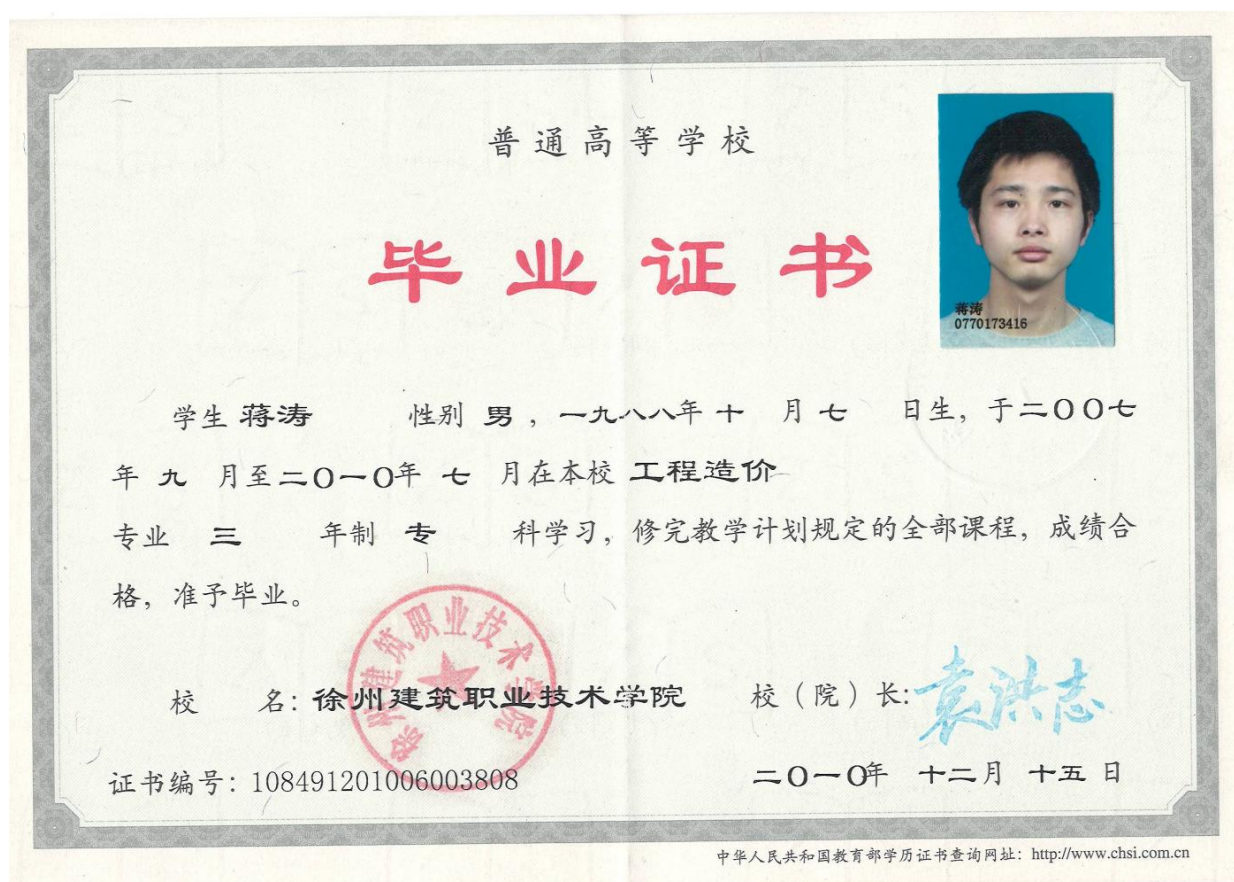 普通高等学校
毕业证书
蒋涛
0770173416
学生 蒋涛 性别 男 ，一九八八年 十 月 七 日生，于二〇〇七
年 九 月至二〇一〇年 七 月在本校 工程造价
专业 三 年制 专 科学习，修完教学计划规定的全部课程，成绩合
格，准予毕业。
徐州建筑职业技术学院
校 名：徐州建筑职业技术学院 校（院）长：袁洪志
证书编号：108491201006003808 二〇一〇年 十二月 十五日
中华人民共和国教育部学历证书查询网址：http://www.chsi.com.cn